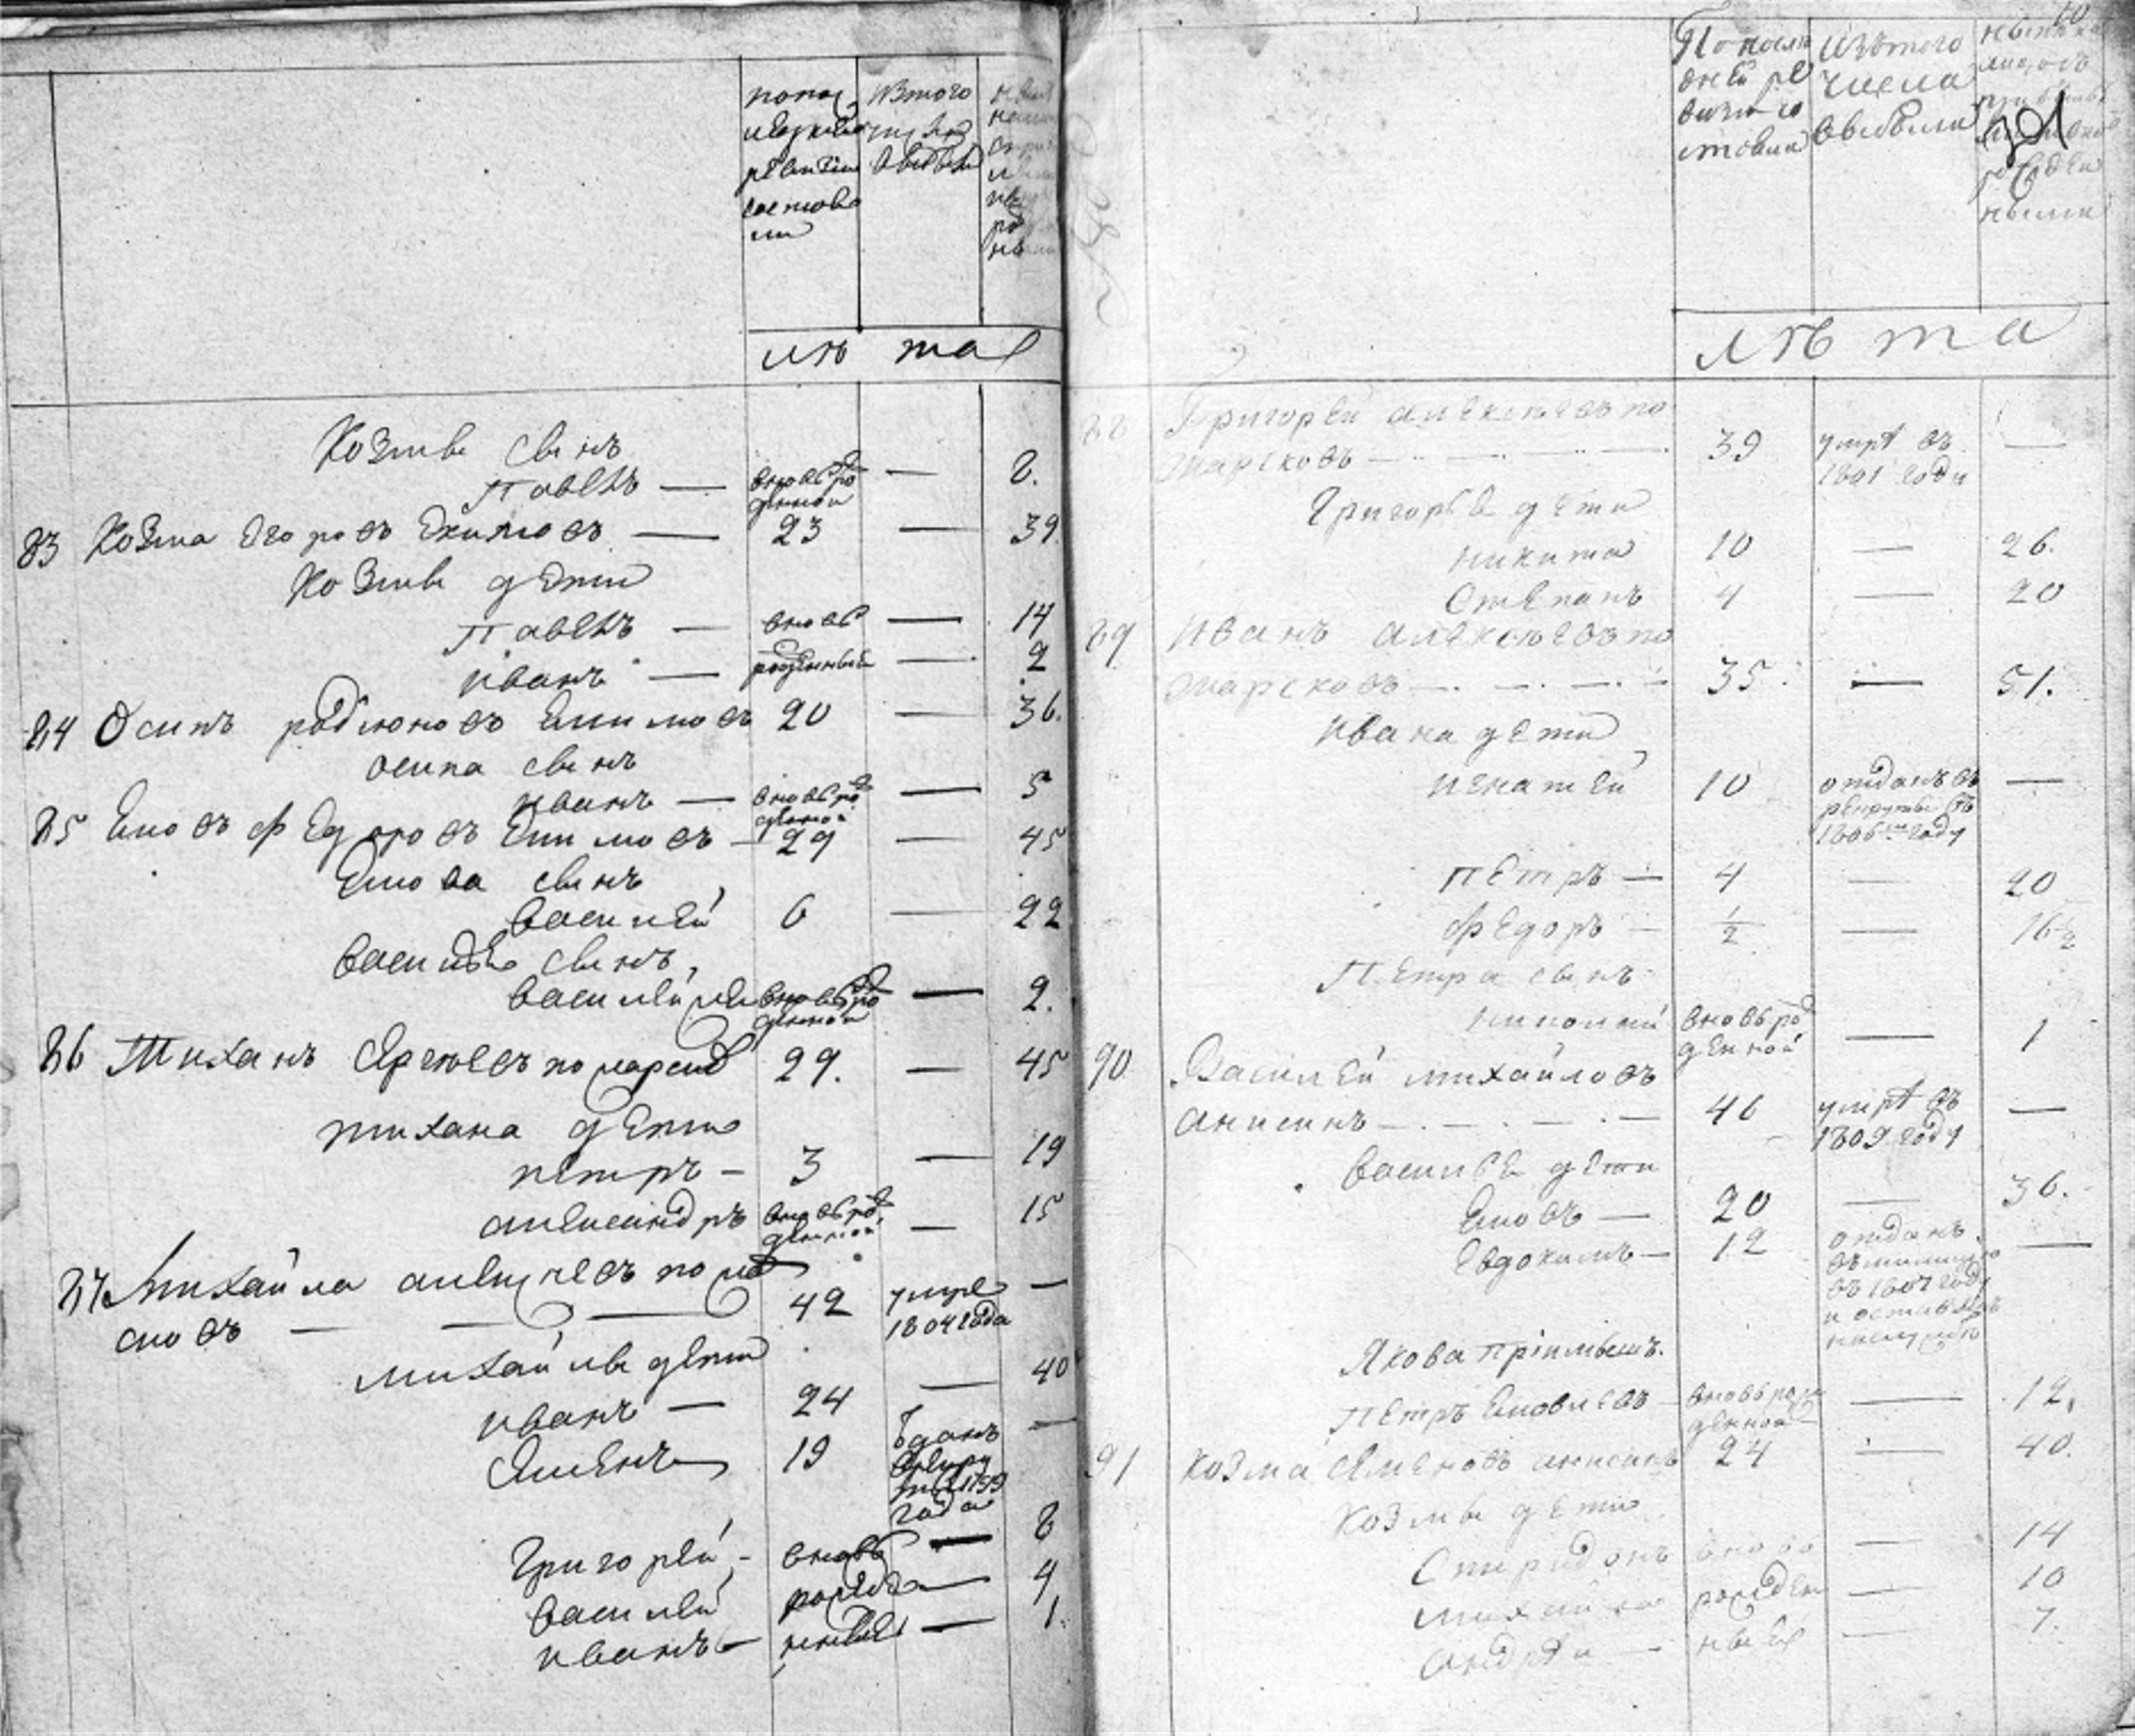 попос
ледней
ревизии
состояло
ли
изтого
числа
выбыли
лѣта
Козмы сынъ
Павелъ — вновь рож
денной — 8.
83 Козма Егоровъ Екимовъ — 23 — 39
Козмы дети
Павелъ — вновь — 14
Иванъ — рожденные — 2
84 Осипъ родионовъ Екимовъ 20 — 36.
осипа сынъ
иванъ — вновь рож
денной — 5
85 Яковъ Федоровъ Екимовъ — 29 — 45
Якова сынъ
василей 6 — 22
василья сынъ
василей же вновь рож
денной — 2.
86 Тиханъ Сергѣевъ помарсков 29. — 45
тихана дети
петръ — 3 — 19
александръ вновь рож
денной — 15
87 Михайла алексѣевъ помар
сковъ — 42 умре
1804 года —
михайлы дети
иванъ — 24 — 40
Семенъ 19 отданъ
в рекру
ты 1799
года —
григорей — вновь — 8
василей рожде — 4
иванъ — нные — 1.
По послѣ
дней ре
визи со
стояли
изътого
числа
выбыли
рожден
ными
лѣта
88 Григорей алексѣевъ по
марсковъ — 39 умре въ
1801 годu —
Григорья дети
никита 10 — 26.
Степанъ 4 — 20
89 иванъ алексѣевъ по
марсковъ — 35 — 51.
ивана дети
игнатей 10 отданъ въ
рекруты въ
1806м году —
петръ — 4 — 20
федоръ — 1/2 — 16 1/2
Петра сынъ
николай вновь рож
денной — 1
90 Василей михайловъ
анисинъ — 46 умре въ
1809 году —
василья дети
Яковъ — 20 — 36.
Евдокимъ — 12 отданъ
въ милицию
въ 1807 году
и оставленъ
—
Якова приимышъ.
Петръ Яковлевъ — вновь рож
денной — 12,
91 козма Семеновъ анисинъ 24 — 40.
козмы дети
Спиридонъ вновь — 14
михайла рожден — 10
андрей — ные — 7.